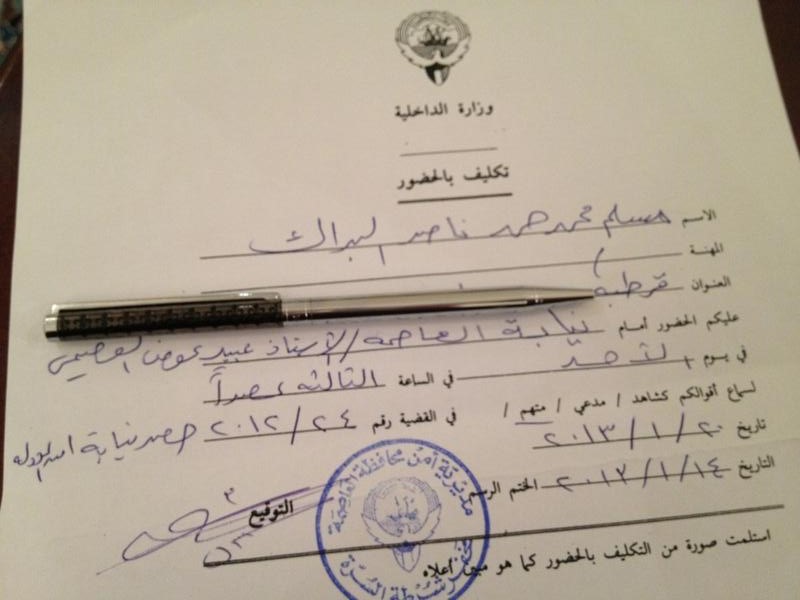 وزارة الداخلية
تكليف بالحضور
الاسم مسلم محمد حمد ناصر البراك
المهنة
العنوان قرطبة
عليكم الحضور أمام نيابة العاصمة / الأستاذ عبيد عوض العصيمي
في يوم الأحد في الساعة الثالثة عصراً
لسماع أقوالكم كشاهد / مدعي / متهم / في القضية رقم ٢٠١٢/٢٤ حصر نيابة امن الدولة
تاريخ ٢٠١٣/١/٢٠
التاريخ ٢٠١٣/١/١٤ الختم الرسمي
التوقيع
مديرية أمن محافظة العاصمة
مخفر شرطة السرة
استلمت صورة من التكليف بالحضور كما هو مبين أعلاه